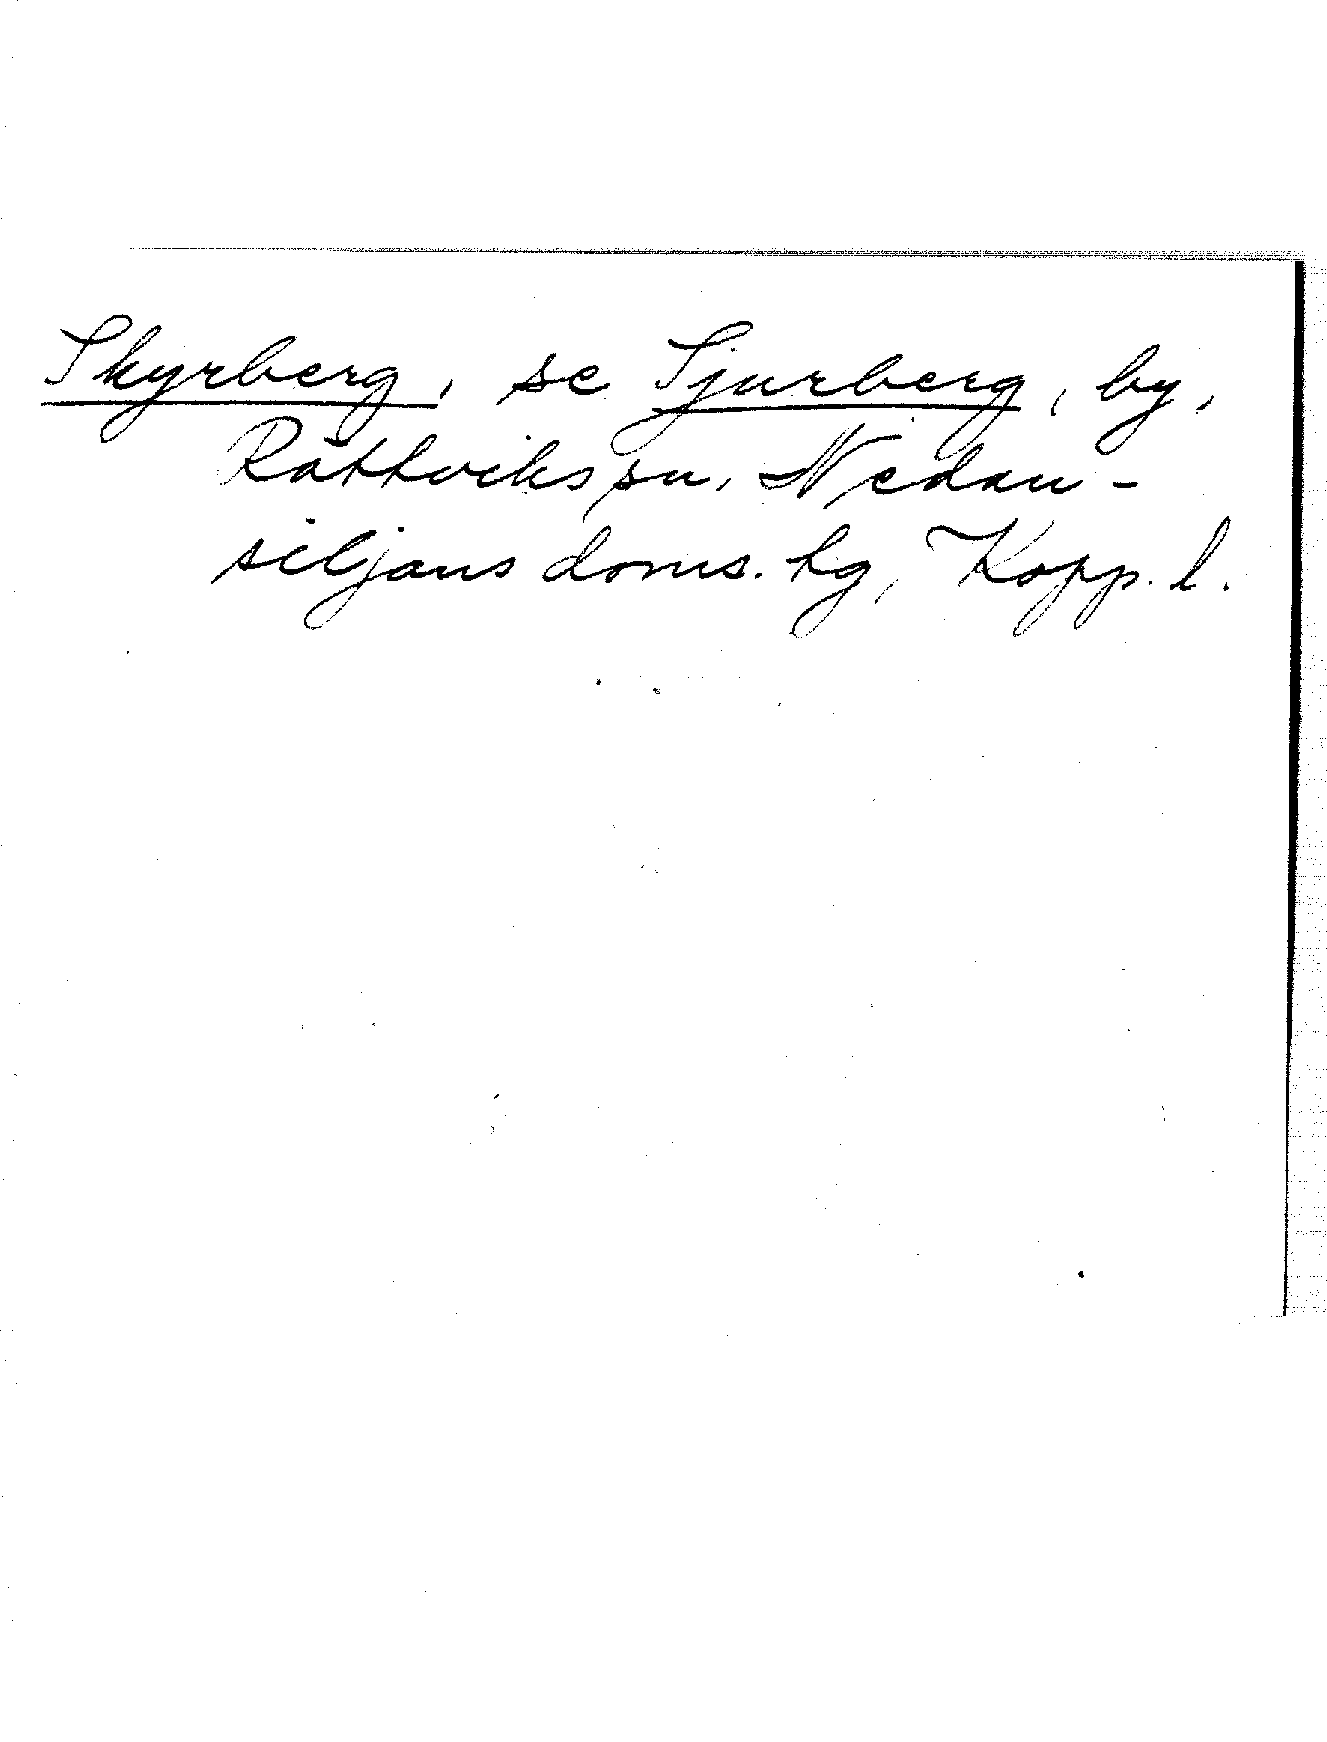 Skyrberg, se Sjurberg, by,
Rättviks sn, Nedan-
siljans doms. hg, Kopp. l.